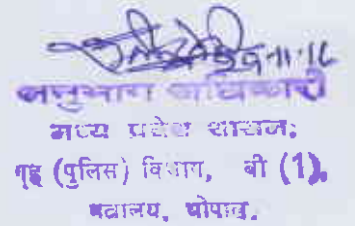 अनुभाग अधिकारी
मध्य प्रदेश शासन;
गृह (पुलिस) विभाग, बी (1),
मंत्रालय, भोपाल.